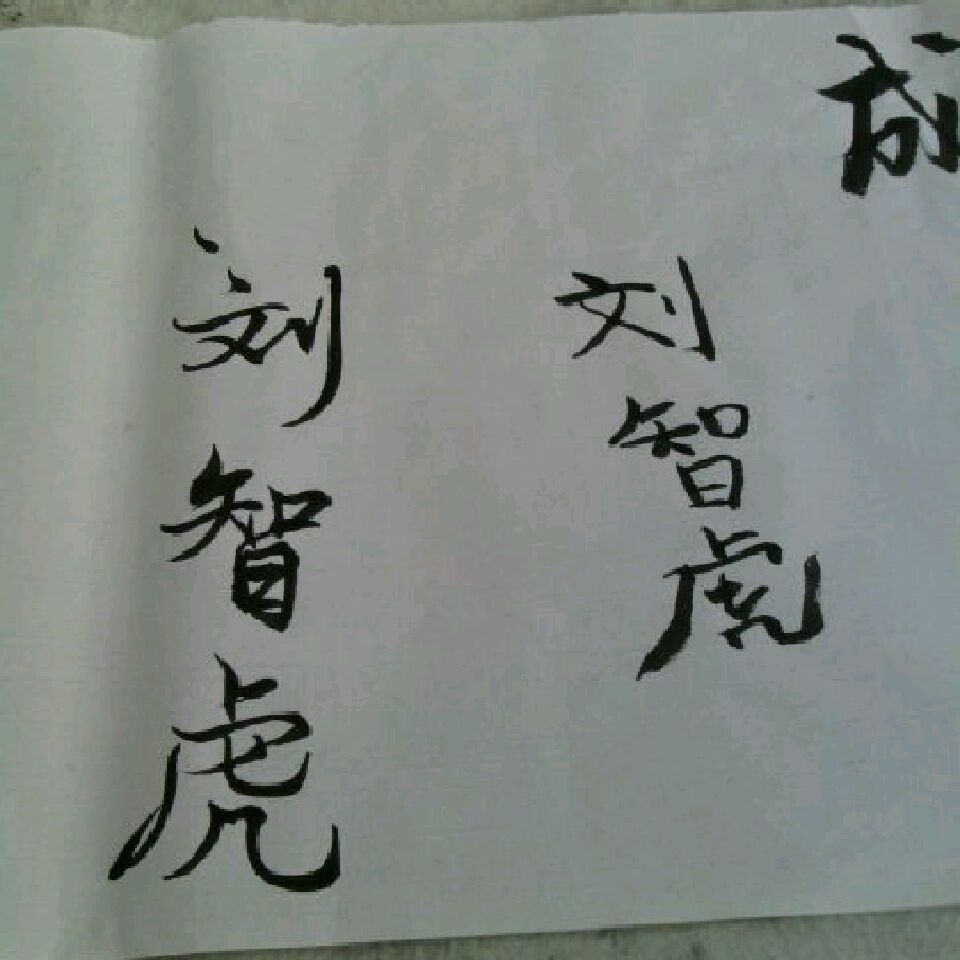 刘智虎
刘智虎